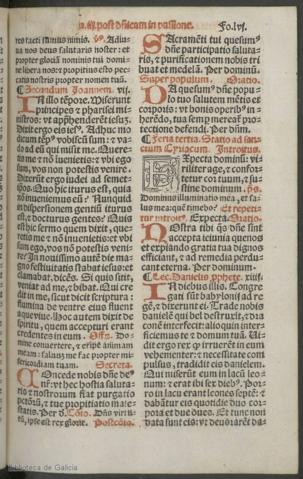 in passione. Fo.lvj.
res facti sumus nimis. Adiu-
ua nos deus salutaris noster: et
propter gloriā nominis tui domi-
ne libera nos: et propitius esto pec-
catis nostris propter nomen tuū.
Secundum Joannem. vij.
In illo tēpore. Miserunt
principes et pharisei mi-
nistros: vt apprehenderēt iesuz.
Dixit ergo eis iesº. Adhuc mo-
dicum tēpº vobiscū sum: et va-
do ad eū qui misit me. Quere-
tis me et nō inuenietis: et vbi ego
sum, vos non potestis venire.
Dixerūt ergo iudei ad semet-
ipsos. Quo hic iturus est, quia
nō inueniemus eū? Nunquid
in dispersionem gentiū iturus
est, et docturus gentes? Quis
est hic sermo quem dixit, que-
retis me et nō inuenietis: et vbi
sum ego, vos nō potestis veni-
re? In nouissimo autē die ma-
gno festiuitatis stabat iesus: et
clamabat, dicēs. Si quis sitit,
veniat ad me, et bibat. Qui cre-
dit in me, sicut dicit scriptura:
flumina de ventre eius fluent
aque viue. Hoc autem dixit de
spiritu, quem accepturi erant
credentes in eum. Offz. Do-
mine conuertere, et eripe animam
meam: saluuz me fac propter mi-
sericordiam tuam. Secreta.
Concede nobis dñe
vt hec hostia saluta-
ris et nostrorum fiat purgatio
et tue propitiatio maie-
statis. Per d. Cōio. Dñs virtutū,
ipse est rex glorie. Postcōio.
Sacramēti tui quesumº
dñe participatio saluta-
ris, et purificationem nobis tri-
buat et medelā. Per dominū.
Super populum. Oratio.
Da quesumº dñe popu-
lo tuo salutem mētis et
corporis: vt bonis operibº in-
herēdo, tua semper mereatur pro-
tectione defendi. Per dñm.
Feria tertia. Statio ad san-
ctum Cyriacum. Introitus.
Expecta dominū: vi-
riliter age, et confor-
tetur cor tuum, et su-
stine dominum. ps.
Dominus illuminatio mea, et sa-
lus mea: quē timebo? Et repeti-
tur introitº. Expecta. Oratio.
Nostra tibi qs dñe sint
accepta ieiunia: que nos
et expiando gratia tua dignos
efficiant, et ad remedia perdu-
cant eterna. Per dominum.
Lec. Danielis pphete. xiiij.
In diebus illis. Congre-
gati sūt babylonij ad re-
gē, et dixerunt ei. Trade nobis
danielē qui bel destruxit, et dra-
conē interfecit: alioquin inter-
ficiemus te et domum tuā. Ui-
dit ergo rex quod irruerēt in eum
vehementer: et necessitate com-
pulsus, tradidit eis danielem.
Qui miserūt eum in lacū leo-
num: et erat ibi sex diebº. Por-
ro in lacu erant leones septē: et
dabātur eis quotidie duo cor-
pora et due oues. Et tunc non
data sunt eis: vt deuorarēt da-
Biblioteca de Galicia